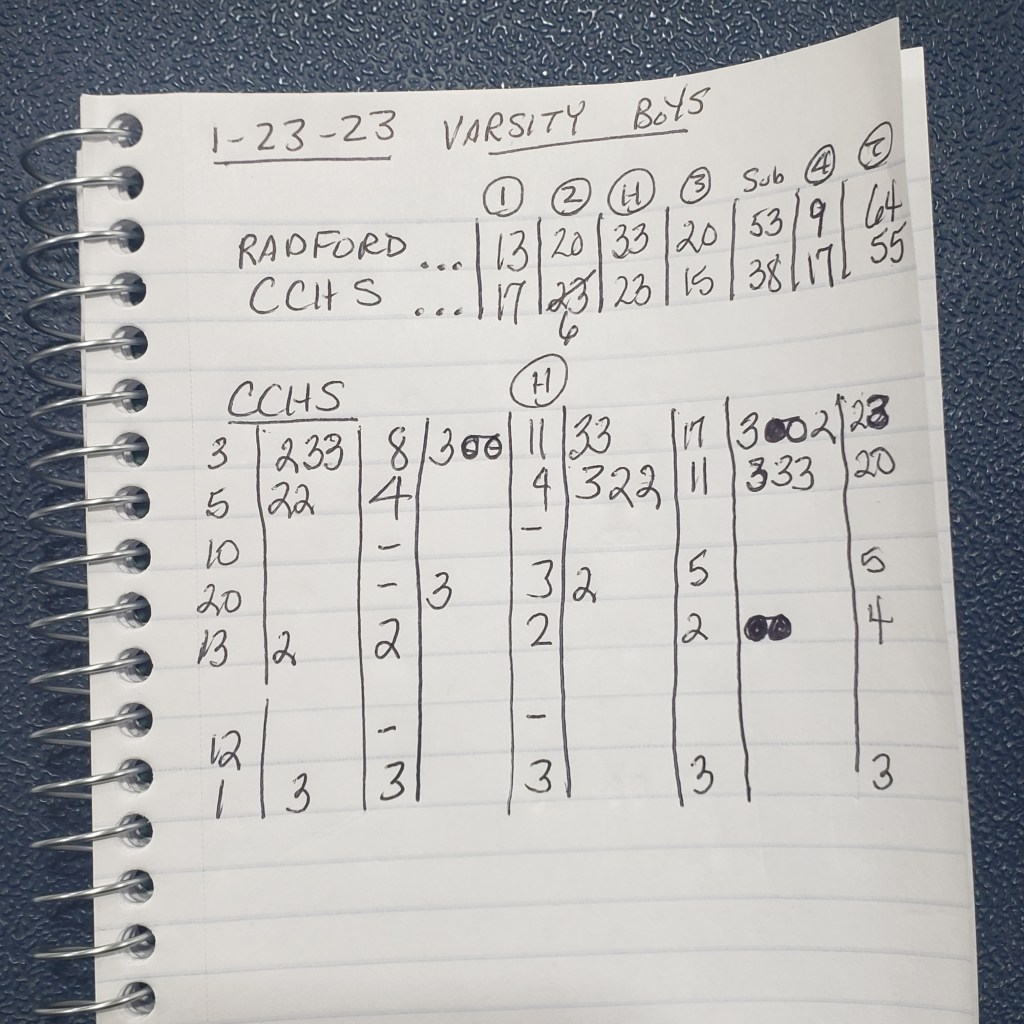 1-23-23 VARSITY BOYS
① ② Ⓗ ③ Sub ④ Ⓣ
RADFORD ... | 13 | 20 | 33 | 20 | 53 | 9 | 64
CCHS ... | 17 | 23 | 23 | 15 | 38 | 17 | 55
6
CCHS Ⓗ
3 | 233 | 8 | 300 | 11 | 33 | 17 | 3●02 | 23
5 | 22 | 4 | | 4 | 322 | 11 | 333 | 20
10 | | - | | - | | | |
20 | | - | 3 | 3 | 2 | 5 | | 5
13 | 2 | 2 | | 2 | | 2 | ●● | 4
12 | | - | | - | | | |
1 | 3 | 3 | | 3 | | 3 | | 3